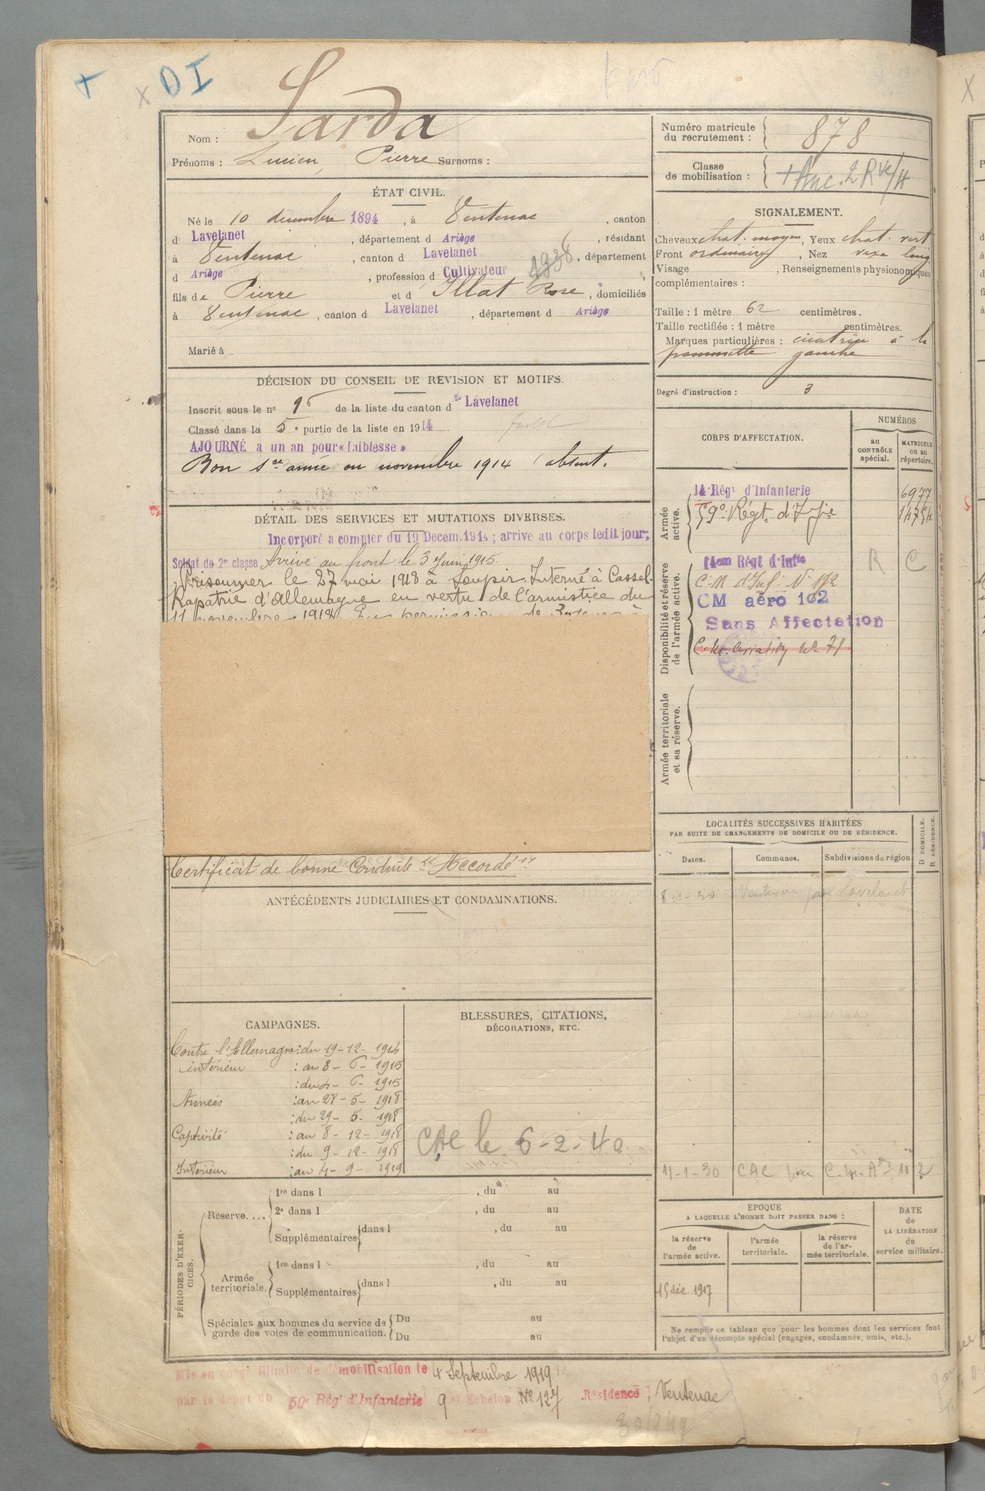 DI
Nom : Sarda
Prénoms : Lucien, Pierre Surnoms :
ÉTAT CIVIL.
Né le 10 décembre 1894, à Ventenac, canton
d Lavelanet, département d Ariège, résidant
à Ventenac, canton d Lavelanet, département
d Ariège, profession d Cultivateur 1938
fils de Pierre et d Illat Rose, domiciliés
à Ventenac, canton d Lavelanet, département d Ariège
Marié à
DÉCISION DU CONSEIL DE REVISION ET MOTIFS.
Inscrit sous le n° 95 de la liste du canton de Lavelanet
Classé dans la 5e partie de la liste en 1914
AJOURNÉ a un an pour « faiblesse »
Bon sce armé en novembre 1914 (absent.
DÉTAIL DES SERVICES ET MUTATIONS DIVERSES.
Incorporé a compter du 19 Decem. 1914 ; arrive au corps ledit jour;
Soldat de 2e classe Arrivé au front le 3 Juin 1915
Prisonnier le 27 mai 1918 à Soupir. Interné à Cassel
Rapatrié d'Allemagne en vertu de l'armistice du
11 novembre 1918
Certificat de bonne Conduite "Accordé"
ANTÉCÉDENTS JUDICIAIRES ET CONDAMNATIONS.
CAMPAGNES.
Contre l'Allemagne : du 19-12-1914
intérieur : au 3-6-1915
: du 4-6-1915
Armées : au 28-5-1918
: du 29-5-1918
Captivité : au 8-12-1918
: du 9-12-1918
Intérieur : au 4-9-1919
BLESSURES, CITATIONS,
DÉCORATIONS, ETC.
CAC le 6-2-40
PÉRIODES D'EXERCICES.
Réserve....
1re dans l , du au
2e dans l , du au
Supplémentaires dans l , du au
Armée territoriale.
1re dans l , du au
Supplémentaires dans l , du au
Spéciales aux hommes du service de garde des voies de communication.
Du au
Du au
Numéro matricule du recrutement : 878
Classe de mobilisation : + Anc. 2 Rve/H
SIGNALEMENT.
Cheveux chat. moyen, Yeux chat. vert
Front ordinaire, Nez vexe long
Visage , Renseignements physionomiques
complémentaires :
Taille : 1 mètre 62 centimètres.
Taille rectifiée : 1 mètre centimètres.
Marques particulières : cicatrice à la
pommette gauche
Degré d'instruction : 3
CORPS D'AFFECTATION.
NUMÉROS
AU CONTRÔLE spécial.
MATRICULE OU AU répertoire.
Armée active.
14 Régt d'Infanterie 6977
59e Régt. d'Infie
Disponibilité et réserve de l'armée active.
Régt d'Infie R C
C M d'Inf. N° 172
CM aéro 102
Sans Affectation
Armée territoriale et sa réserve.
LOCALITÉS SUCCESSIVES HABITÉES
PAR SUITE DE CHANGEMENTS DE DOMICILE OU DE RÉSIDENCE.
Dates. Communes. Subdivisions de région
D DOMICILE. R RÉSIDENCE.
Ventenac par Lavelanet
11-1-30 CAC
EPOQUE
A LAQUELLE L'HOMME DOIT PASSER DANS :
la réserve de l'armée active.
l'armée territoriale.
la réserve de l'armée territoriale.
DATE DE LA LIBÉRATION du service militaire.
15 déc. 1917
Ne remplir ce tableau que pour les hommes dont les services font
l'objet d'un décompte spécial (engagés, condamnés, omis, etc.).
Mis en congé illimité de démobilisation le 4 Septembre 1919
par le dépôt du 59e Régt d'Infanterie 9 Echelon N° 127 Résidence : Ventenac